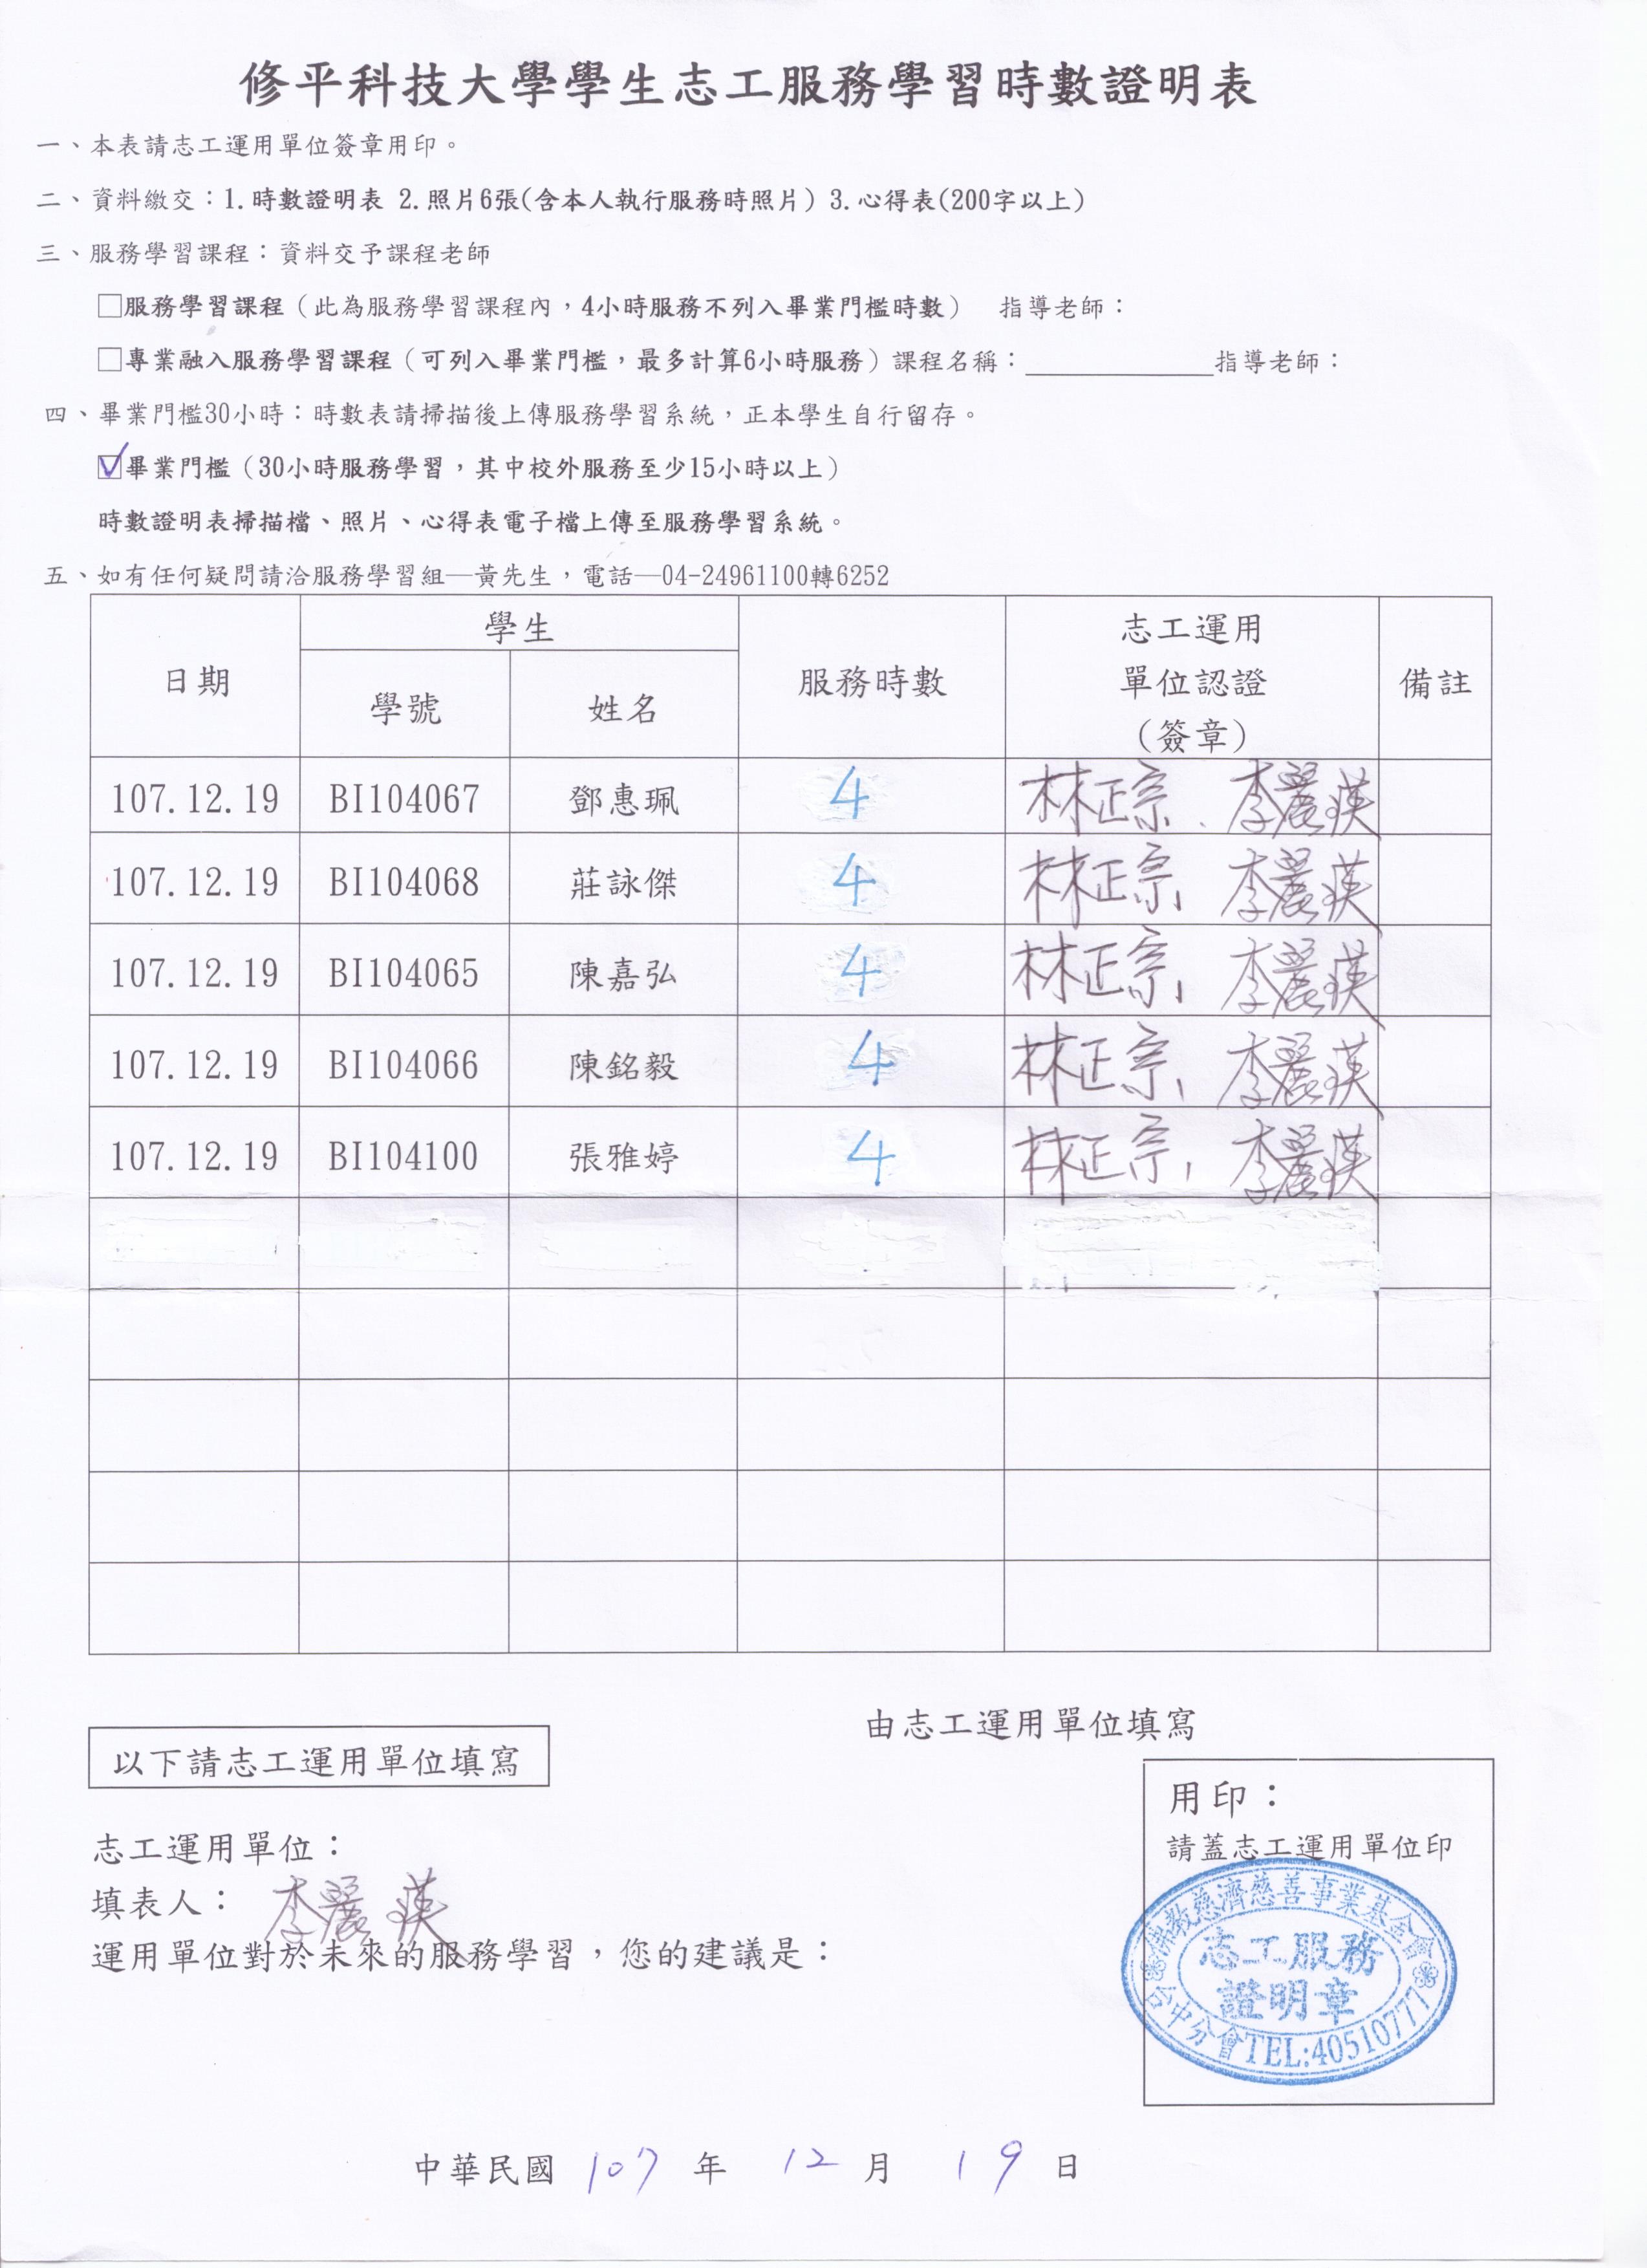 修平科技大學學生志工服務學習時數證明表
一、本表請志工運用單位簽章用印。
二、資料繳交：1.時數證明表 2.照片6張(含本人執行服務時照片) 3.心得表(200字以上)
三、服務學習課程：資料交予課程老師
□服務學習課程（此為服務學習課程內，4小時服務不列入畢業門檻時數） 指導老師：
□專業融入服務學習課程（可列入畢業門檻，最多計算6小時服務）課程名稱：____________指導老師：
四、畢業門檻30小時：時數表請掃描後上傳服務學習系統，正本學生自行留存。
☑畢業門檻（30小時服務學習，其中校外服務至少15小時以上）
時數證明表掃描檔、照片、心得表電子檔上傳至服務學習系統。
五、如有任何疑問請洽服務學習組—黃先生，電話—04-24961100轉6252
日期 學生 服務時數 志工運用單位認證（簽章） 備註
學號 姓名
107.12.19 BI104067 鄧惠珮 4 林正宗、李麗瑛
107.12.19 BI104068 莊詠傑 4 林正宗、李麗瑛
107.12.19 BI104065 陳嘉弘 4 林正宗、李麗瑛
107.12.19 BI104066 陳銘毅 4 林正宗、李麗瑛
107.12.19 BI104100 張雅婷 4 林正宗、李麗瑛
由志工運用單位填寫
以下請志工運用單位填寫
用印：
請蓋志工運用單位印
志工運用單位：
填表人：李麗瑛
運用單位對於未來的服務學習，您的建議是：
佛教慈濟慈善事業基金會
志工服務
證明章
台中分會TEL:40510777
中華民國 107 年 12 月 19 日